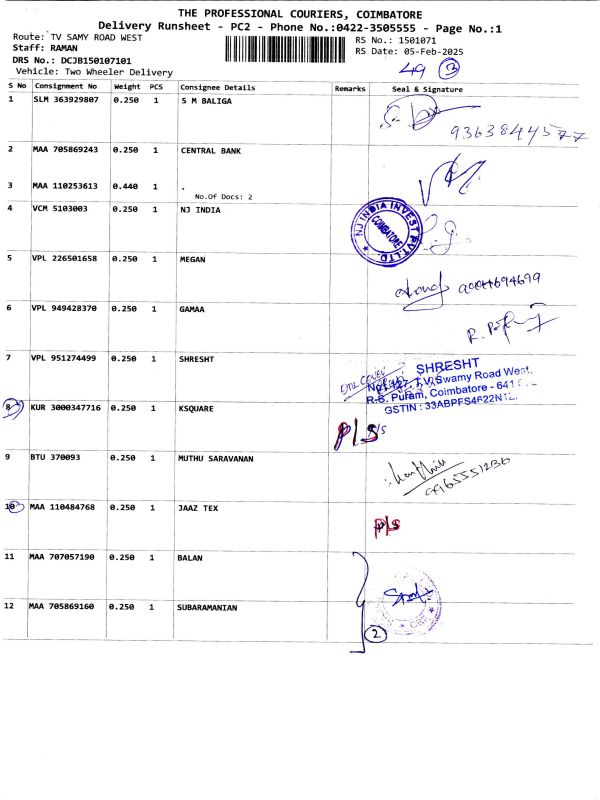 THE PROFESSIONAL COURIERS, COIMBATORE
Delivery Runsheet - PC2 - Phone No.:0422-3505555 - Page No.:1
Route: TV SAMY ROAD WEST
RS No.: 1501071
Staff: RAMAN
RS Date: 05-Feb-2025
DRS No.: DCJB150107101
Vehicle: Two Wheeler Delivery
49 3
S No Consignment No Weight PCS Consignee Details Remarks Seal & Signature
1 SLM 363929807 0.250 1 S M BALIGA
9363844577
2 MAA 705869243 0.250 1 CENTRAL BANK
3 MAA 110253613 0.440 1 .
No.Of Docs: 2
4 VCM 5103003 0.250 1 NJ INDIA
NJ INDIA INVEST PVT. LTD.
COIMBATORE
5 VPL 226501658 0.250 1 MEGAN
6 VPL 949428370 0.250 1 GAMAA
7 VPL 951274499 0.250 1 SHRESHT
SHRESHT
T.V.Swamy Road West,
R.S. Puram, Coimbatore - 641
GSTIN : 33ABPFS4622N1
8 KUR 3000347716 0.250 1 KSQUARE
P/S
9 BTU 370093 0.250 1 MUTHU SARAVANAN
9965551236
10 MAA 110484768 0.250 1 JAAZ TEX
P/S
11 MAA 707057190 0.250 1 BALAN
12 MAA 705869160 0.250 1 SUBARAMANIAN
2